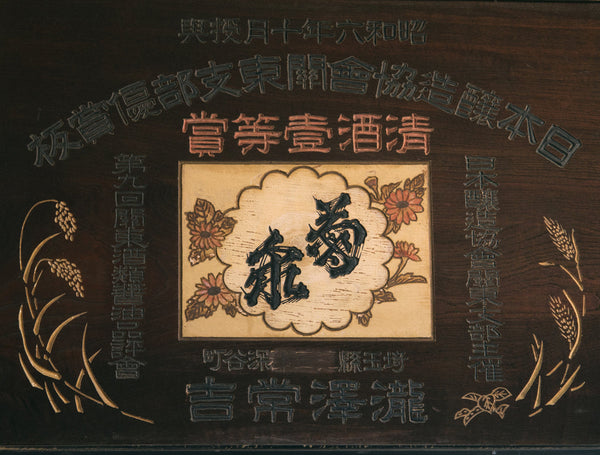 昭和六年十月授與
日本釀造協會關東支部優賞板
清酒壹等賞
日本釀造協會關東支部主催
菊泉
第九回關東酒類醬油品評會
埼玉縣 深谷町
瀧澤常吉